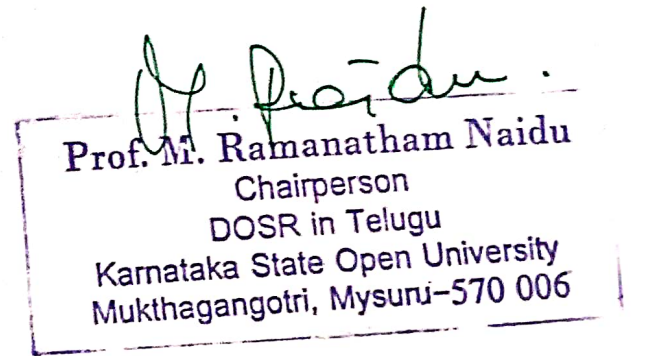 Prof. M. Ramanatham Naidu
Chairperson
DOSR in Telugu
Karnataka State Open University
Mukthagangotri, Mysuru–570 006